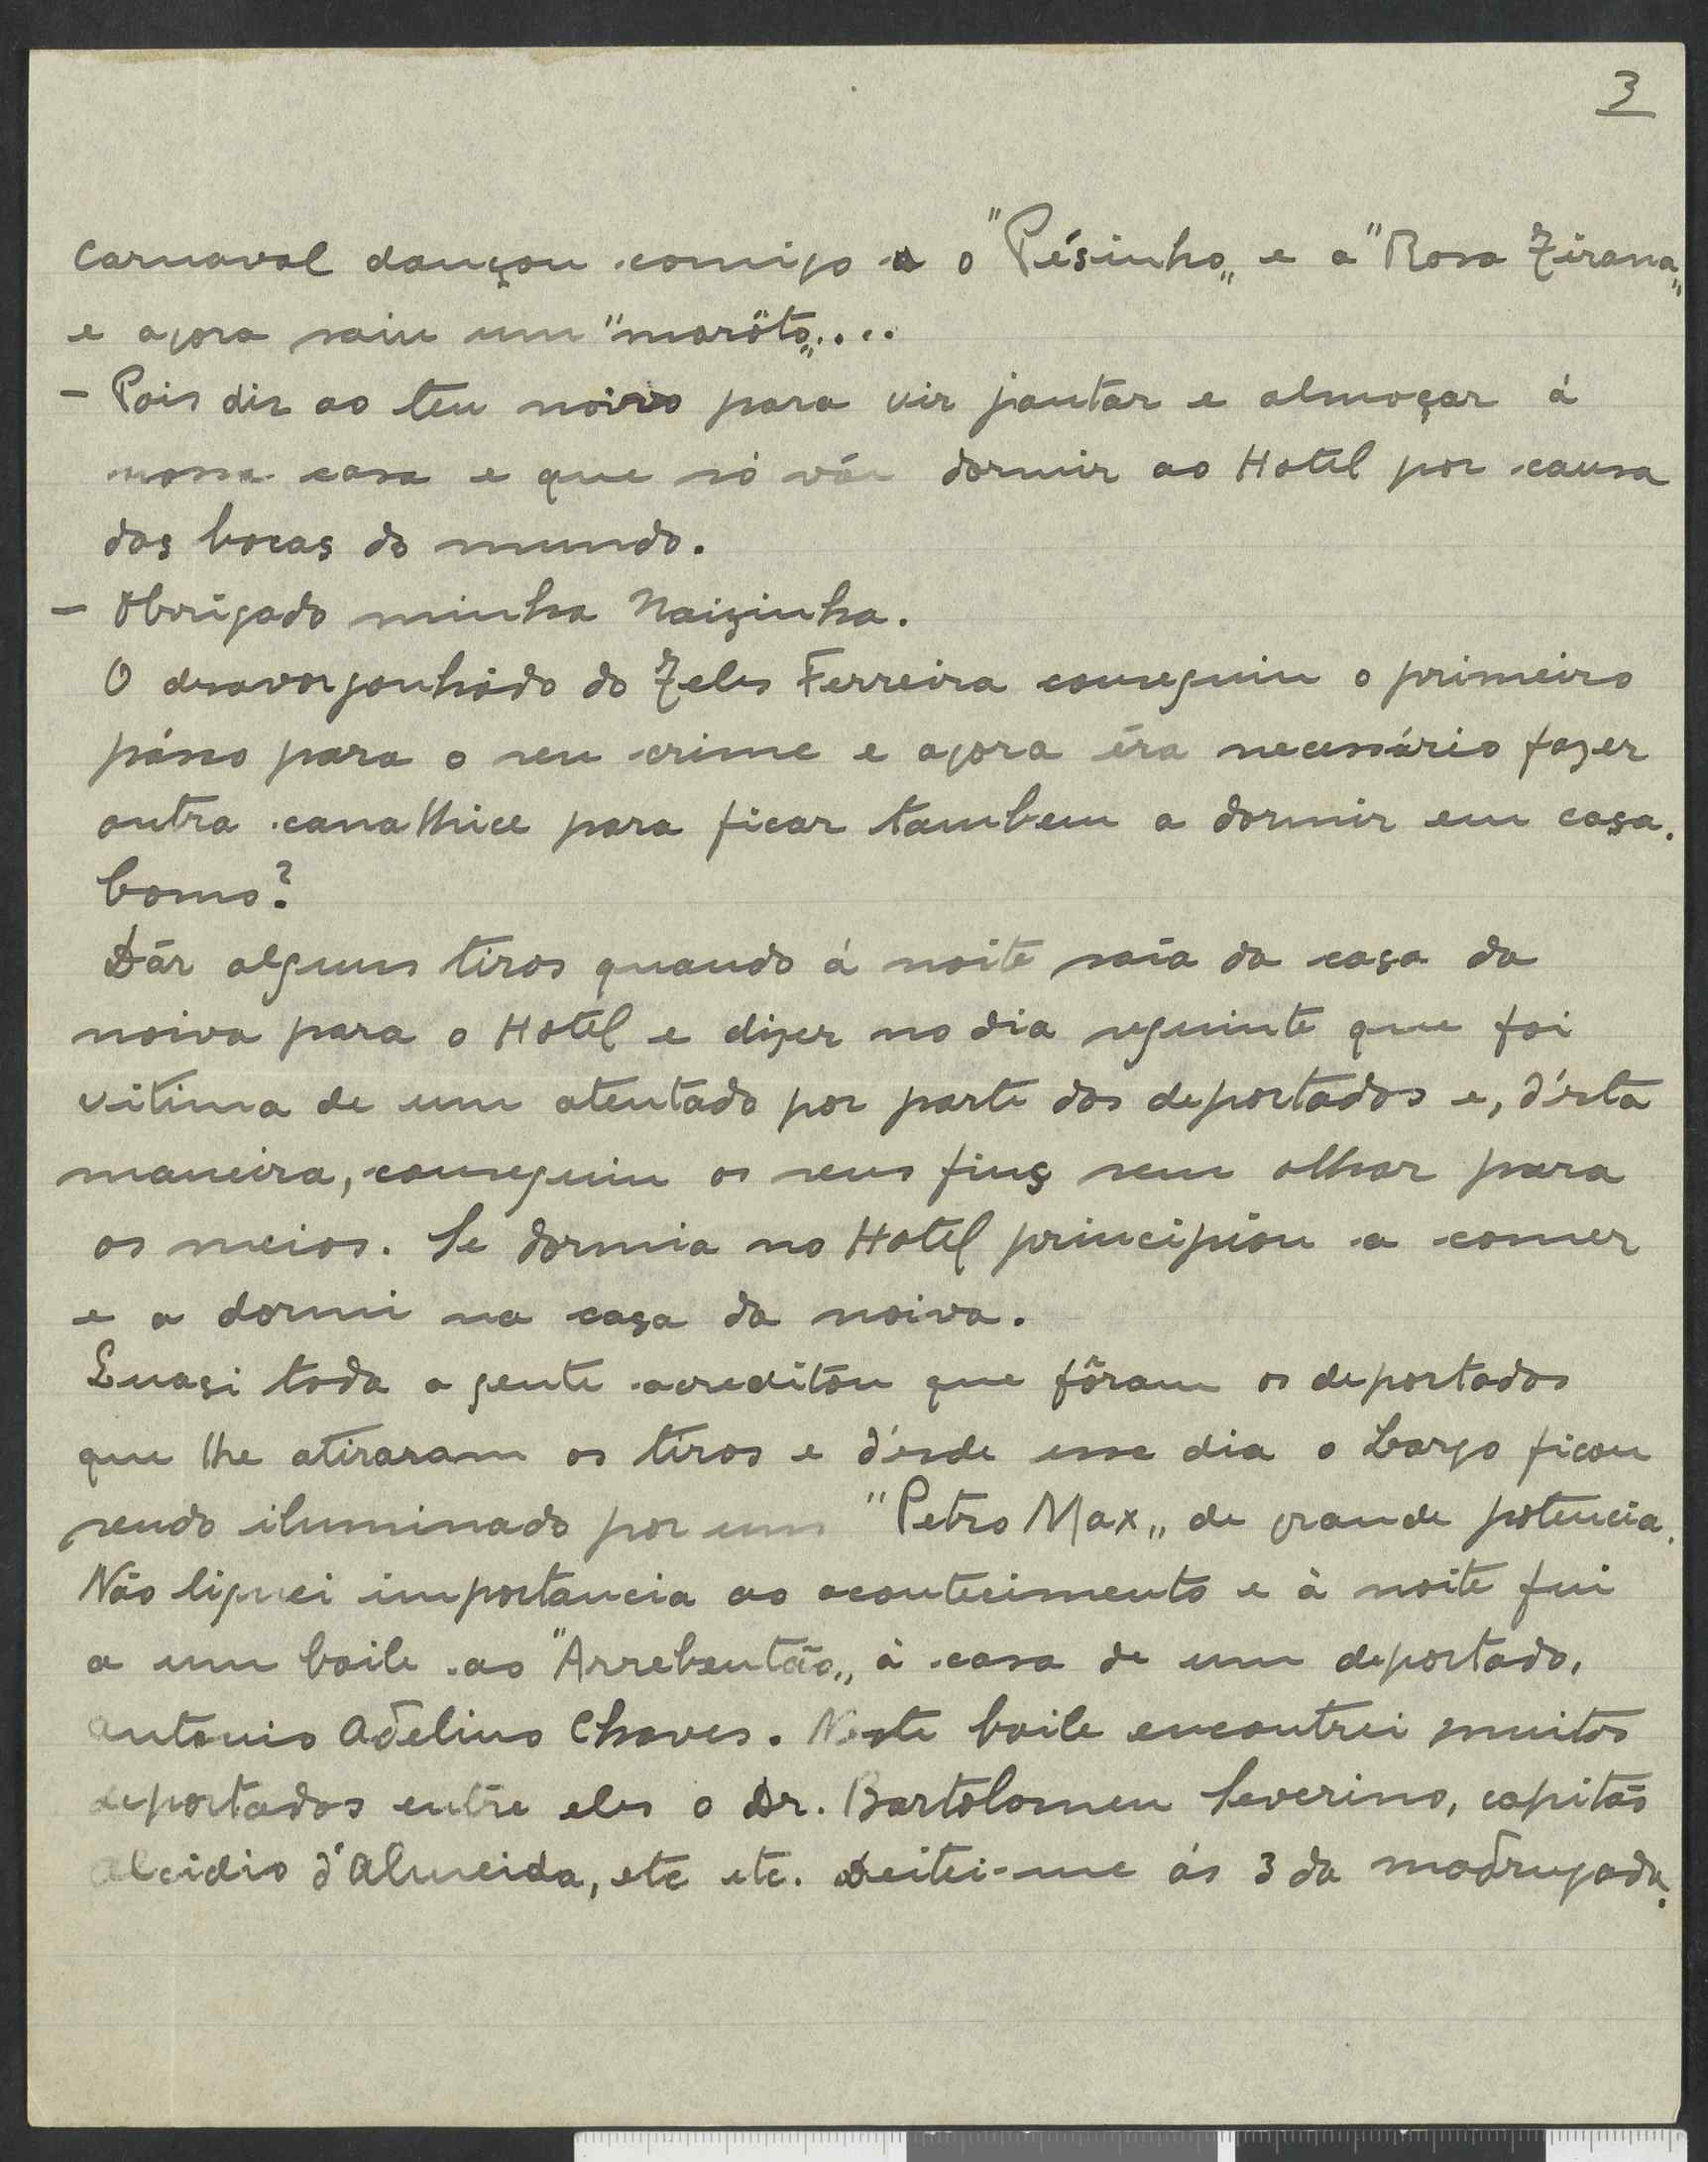 3
Carnaval dançou comigo o "Pésinho„ e a "Rosa Tirana„
e agora saiu um "marôto„....
– Pois diz ao teu noivo para vir jantar e almoçar á
nossa casa e que só vái dormir ao Hotel por causa
das bocas do mundo.
– Obrigado minha Mãizinha.
O desavergonhádo do Teles Ferreira conseguiu o primeiro
pásso para o seu crime e agora éra necessário fazer
outra canalhice para ficar tambem a dormir em casa.
Como?
Dár alguns tiros quando á noite saía da casa da
noiva para o Hotel e dizer no dia seguinte que foi
vitima de um atentado por parte dos deportados e, d'ésta
maneira, conseguiu os seus fins sem olhar para
os meios. Se dormia no Hotel principiou a comer
e a dormi na casa da noiva.
Quasi toda a gente acreditou que fôram os deportados
que lhe atiraram os tiros e d'esde esse dia o Largo ficou
sendo iluminado por um "Petro Max„ de grande potencia.
Não liguei importancia ao acontecimento e à noite fui
a um baile ao "Arrebentão„ à casa de um deportado,
Antonio Adelino Chaves. Neste baile encontrei muitos
deportados entre eles o Dr. Bartolomeu Severino, capitão
Alcidio d'Almeida, etc etc. Deitei-me ás 3 da madrugada.